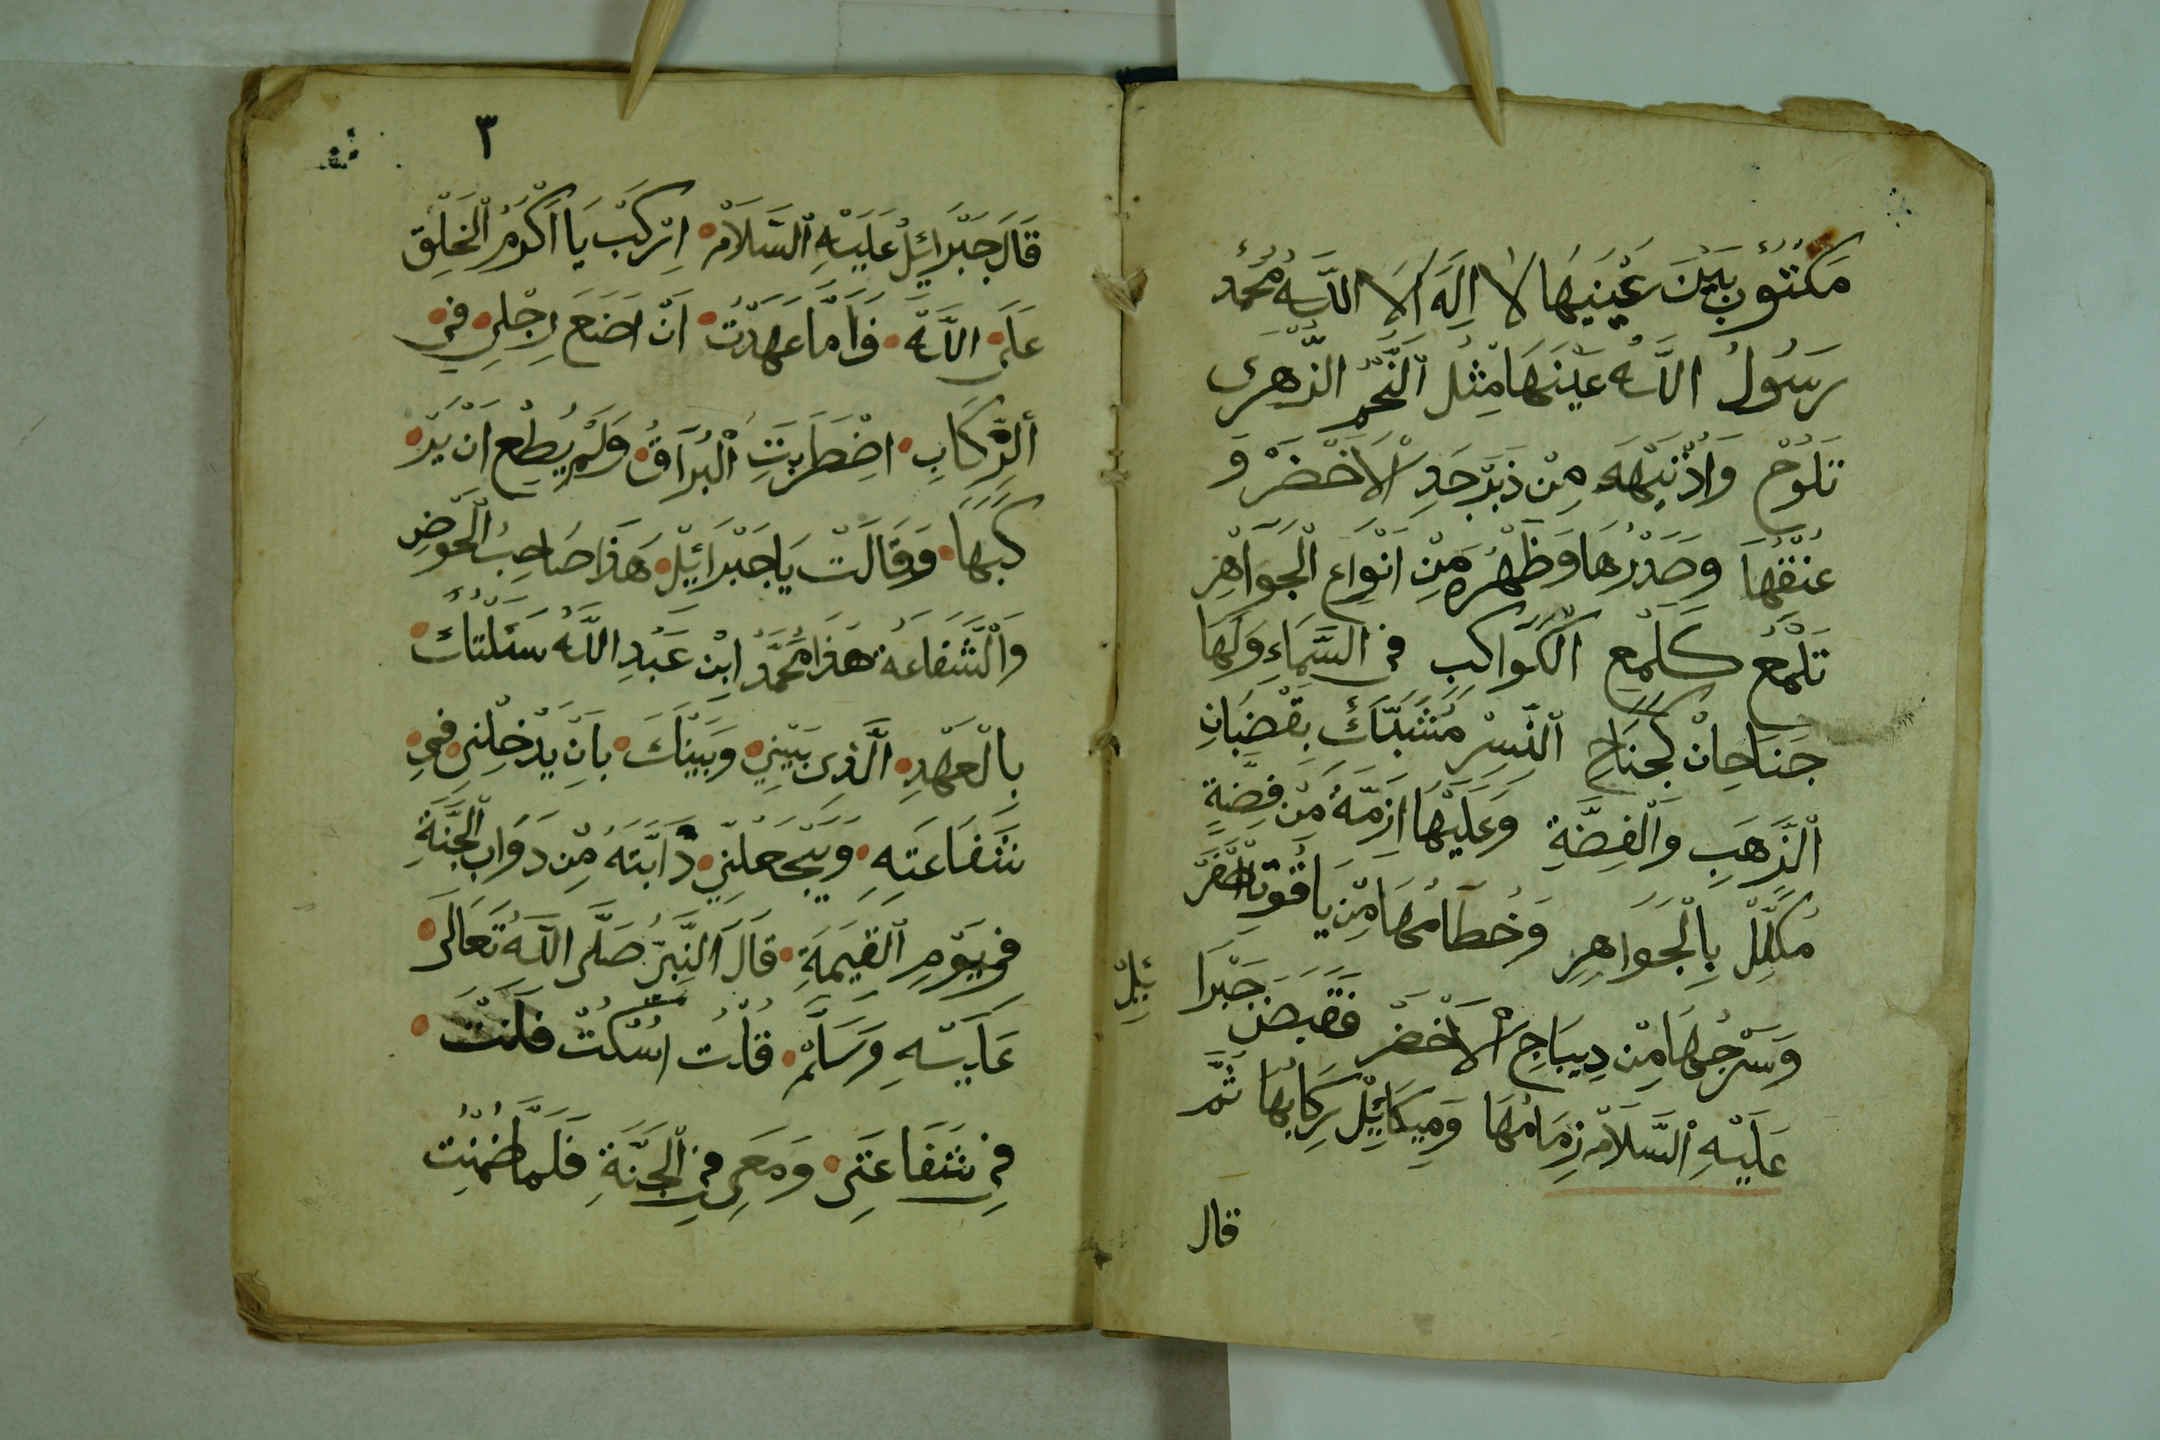 مَكْتُوبٌ بَيْنَ عَيْنَيْهَا لَا اِلَهَ اَلَا اللَّهُ مُحَمَّدٌ
رَسُولُ اللَّهُ عَيْنَهَا مِثْلُ اَلنَّجْمِ الذَّهَرِى
تَلَوْحُ وَاُذْنَيْهَه مِنْ ذَبَرْجَدِ الْاَخْضَرْ وَ
عُنْقُهَا وَصَدْرُهَا وَظَهْرُه مِنْ اَنْوَاعِ الْجَوَاهِرِ
تَلْمَعُ كَلَمْعِ الْكَوَاكِبِ فِى السَّمَاءِ وَلَهَا
جَنَاحَانْ كَجَنَاحِ النَّسِرْ مُشَبَّكْ بِقَضْبَانِ
الذَّهَبِ وَالْفِضَّةِ وَعَلَيْهَا اَزِمَّةُ مِنْ فِضَّةٍ
مُكَلَّلْ بِالْجَوَاهِرِ وَخُطَامُهَا مِنْ يَاقُوتِ
وَسَرْجُهَا مِنْ دِيبَاجِ الْاَخْضَرْ فَقَبَضَ جَبْرَا ئِلْ
عَلَيْهِ السَّلَامْ زِمَامُهَا وَمِيكَائِلْ رِكَابُهَا ثُمَّ
قال
٣
قَالَ جَبْرَائِلُ عَلَيْهِ السَّلَامْ اِرْكَبْ يَا اَكْرَمُ الْخَلْقِ
عَلَى اللَّهِ فَاَمَّا عَهَدْتُ اَنْ اَضَعَ رِجْلِى فِى
اَلرِّكَابِ اضْطَرَبَتِ الْبُرَاقُ وَلَمْ يُطِعِ اَنْ يَرْ
كَبَهَا وَقَالَتْ يَا جَبْرَائِلْ هَذَا صَاحِبُ الْحَوْضِ
وَالشَّفَاعَةِ هَذَا مُحَمَّدُ اِبْنِ عَبْدِ اللَّهُ سَئَلْتُكَ
بِالْعَهْدِ الَّذِى بَيْنِي وَبَيْنَكَ بَاَنْ يَدْخِلْنِى فِي
شَفَاعَتِهِ وَيَجْعَلْنِي دَابَّتَهُ مِنْ دَوَابِ الْجَنَّةِ
فِى يَوْمِ الْقِيمَةِ قَالَ النَّبِىُّ صَلَّى اللَّهُ تَعَالَى
عَلَيْهِ وَسَلَّمْ قُلْتُ اُسْكُتْ فَاَنْتَ
فِى شَفَاعَتِى وَمَعِى فِى الْجَنَّةِ فَلَمَّا ضَمِنْتُ